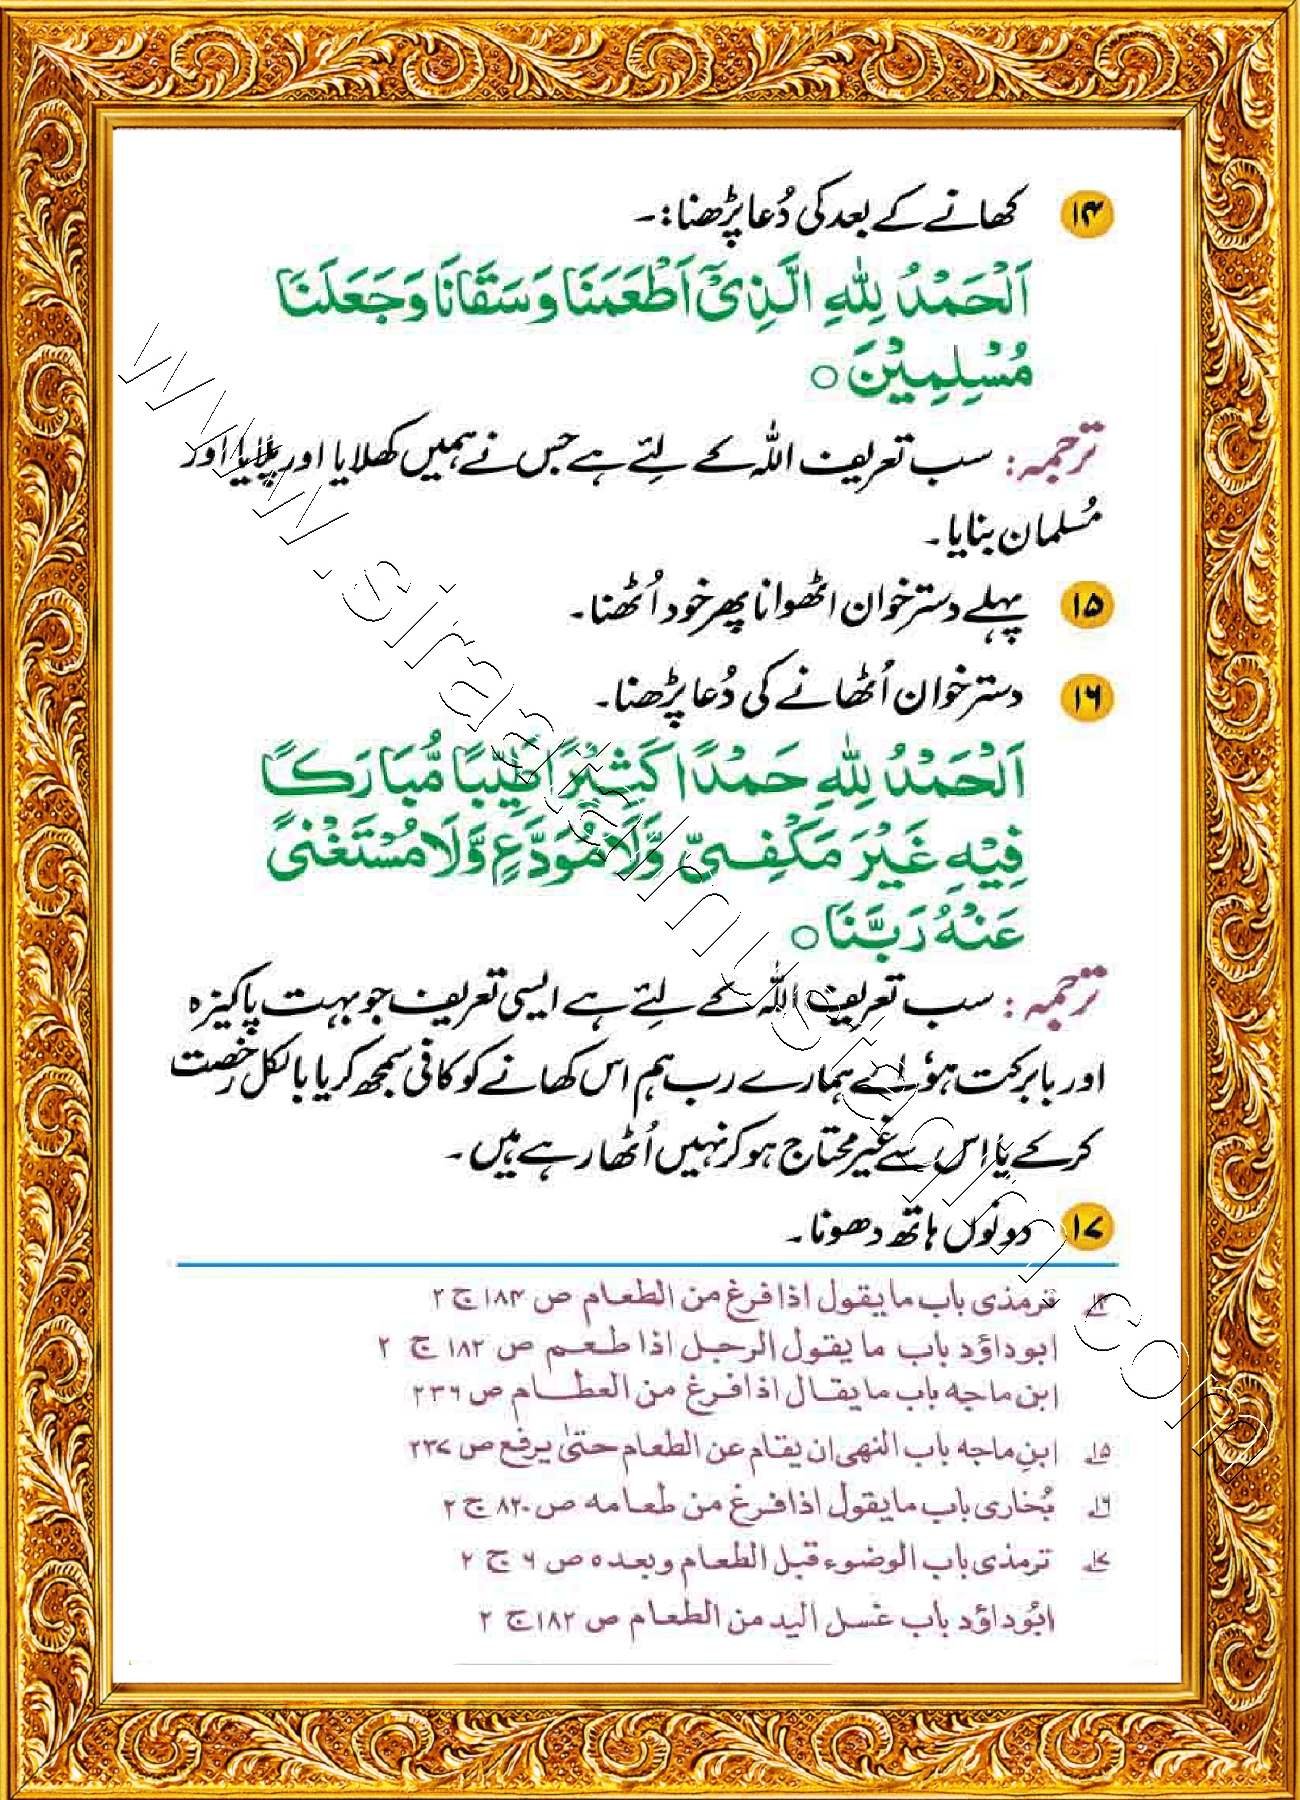 ۱۴ کھانے کے بعد کی دُعا پڑھنا:۔
اَلْحَمْدُ لِلّٰهِ الَّذِیْٓ اَطْعَمَنَا وَسَقَانَا وَجَعَلَنَا
مُسْلِمِیْنَ ○
ترجمہ: سب تعریف اللہ کے لئے ہے جس نے ہمیں کھلایا اور پلایا اور
مُسلمان بنایا۔
۱۵ پہلے دسترخوان اٹھوانا پھر خود اُٹھنا۔
۱۶ دسترخوان اُٹھانے کی دُعا پڑھنا۔
اَلْحَمْدُ لِلّٰهِ حَمْدًا کَثِیْرًا طَیِّبًا مُّبَارَکًا
فِیْهِ غَیْرَ مَکْفِیٍّ وَّلَا مُوَدَّعٍ وَّلَا مُسْتَغْنًی
عَنْهُ رَبَّنَا ○
ترجمہ: سب تعریف اللہ کے لئے ہے ایسی تعریف جو بہت پاکیزہ
اور بابرکت ہو اے ہمارے رب ہم اس کھانے کو کافی سمجھ کر یا بالکل رخصت
کر کے یا اس سے غیر محتاج ہو کر نہیں اُٹھا رہے ہیں۔
۱۷ دونوں ہاتھ دھونا۔
۱۴ ترمذی باب ما یقول اذا فرغ من الطعام ص ۱۸۴ ج ۲
ابوداؤد باب ما یقول الرجل اذا طعم ص ۱۸۲ ج ۲
ابن ماجه باب ما یقال اذا فرغ من العطام ص ۲۳۶
۱۵ ابنِ ماجه باب النهی ان یقام عن الطعام حتیٰ یرفع ص ۲۳۷
۱۶ بُخاری باب ما یقول اذا فرغ من طعامه ص ۸۲۰ ج ۲
۱۷ ترمذی باب الوضوء قبل الطعام وبعده ص ۶ ج ۲
ابُوداؤد باب غسل الید من الطعام ص ۱۸۲ ج ۲
www.siraatalmustaqim.com